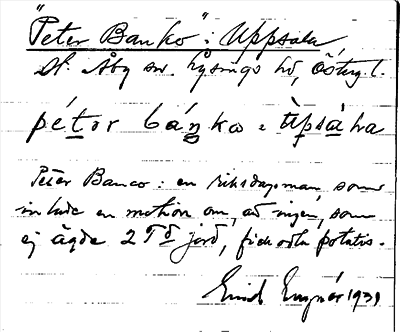 "Peter Banko" i Uppsala
St. Åby sn. Lysings hd, Österg. l.
pétər báŋko i ùpsàla
Peter Banco: en riksdagsman som
inlade en motion om, att ingen, som
ej ägde 2 Td jord, fick odla potatis.
1931